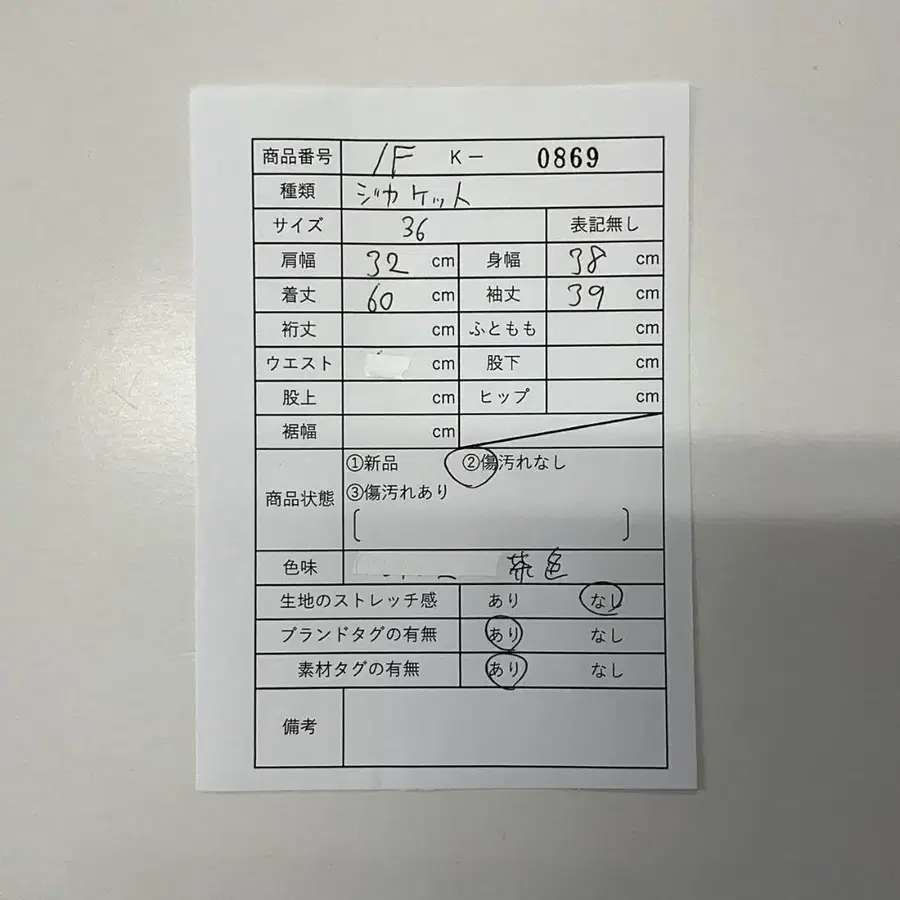 商品番号 1F K- 0869
種類 ジカケット
サイズ 36 表記無し
肩幅 32 cm 身幅 38 cm
着丈 60 cm 袖丈 39 cm
裄丈 cm ふともも cm
ウエスト cm 股下 cm
股上 cm ヒップ cm
裾幅 cm
商品状態 ①新品 ②傷汚れなし
③傷汚れあり
[ ]
色味 茶色
生地のストレッチ感 あり なし
ブランドタグの有無 あり なし
素材タグの有無 あり なし
備考